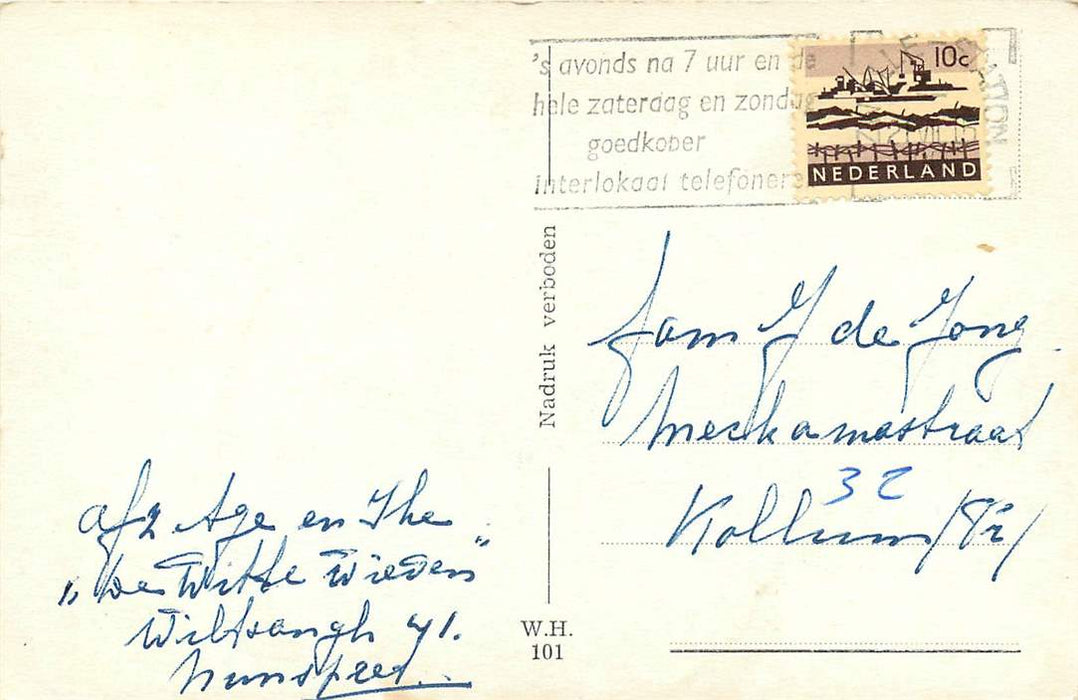 's avonds na 7 uur en de
hele zaterdag en zondag
goedkoper
interlokaal telefonere
10c
NEDERLAND
Nadruk verboden
Fam J de Jong
Meckamastraat
32
Kollum (Fr)
afz Age en The
"De Witte Wieven"
Wiltsangh 41.
Nunspeet.
W.H.
101